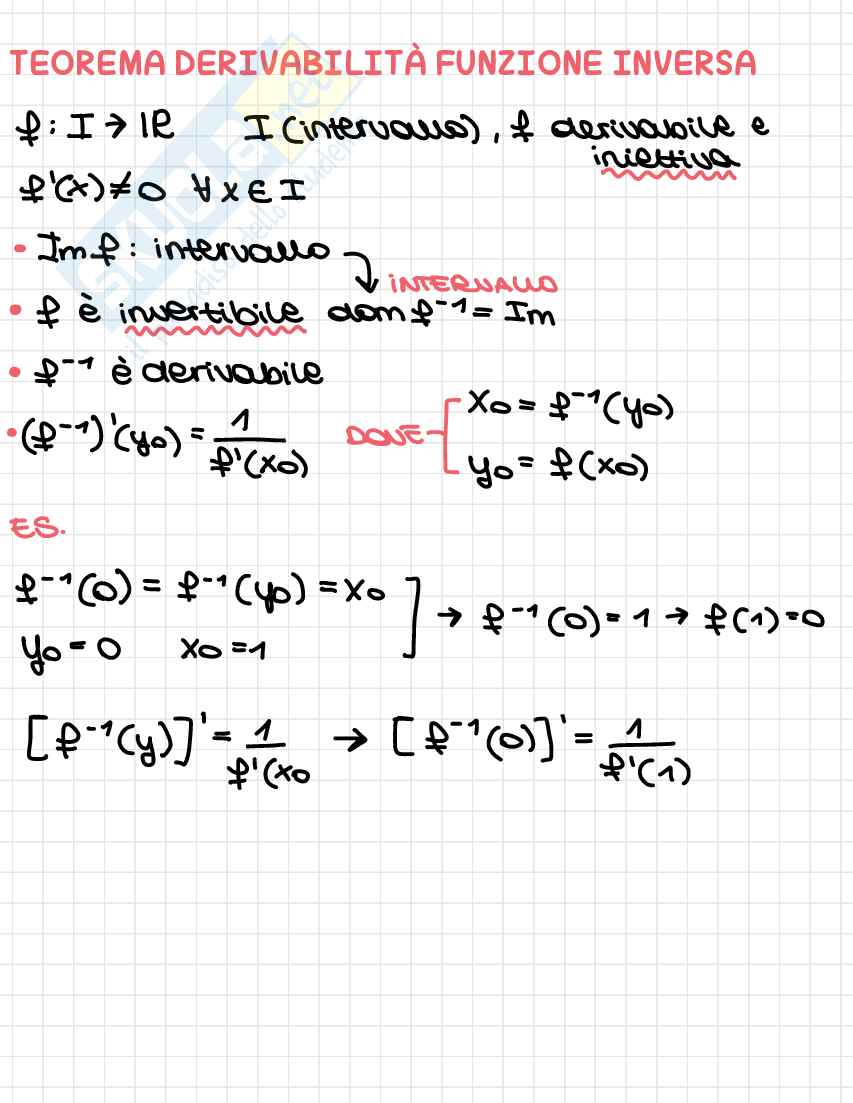 TEOREMA DERIVABILITÀ FUNZIONE INVERSA
f : I → IR I (intervallo), f derivabile e
iniettiva
f'(x) ≠ 0 ∀ x ∈ I
• Im f : intervallo
INTERVALLO
• f è invertibile dom f⁻¹ = Im
• f⁻¹ è derivabile
• (f⁻¹)'(y0) = 1/f'(x0) DOVE x0 = f⁻¹(y0)
y0 = f(x0)
ES.
f⁻¹(0) = f⁻¹(y0) = x0 ] → f⁻¹(0) = 1 → f(1) = 0
y0 = 0 x0 = 1
[f⁻¹(y)]' = 1/f'(x0 → [f⁻¹(0)]' = 1/f'(1)
SKUOLA.net